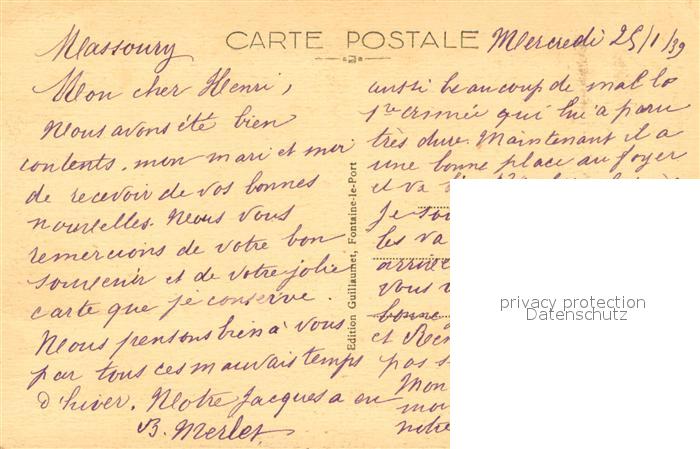 CARTE POSTALE
Massoury
Mercredi 25/1/39
Mon cher Henri,
Nous avons été bien
contents, mon mari et moi
de recevoir de vos bonnes
nouvelles. Nous vous
remercions de votre bon
souvenir et de votre jolie
carte que je conserve.
Nous pensons bien à vous
par tous ces mauvais temps
d'hiver. Notre Jacques a eu
B. Merlet
Edition Guillaumet, Fontaine-le-Port
aussi beaucoup de mal la
1re année qui lui a paru
très dure. Maintenant il a
une bonne place au foyer
et va
Je
les va
arrive
vous
bonne
et
pas
Mon
notre
privacy protection
Datenschutz